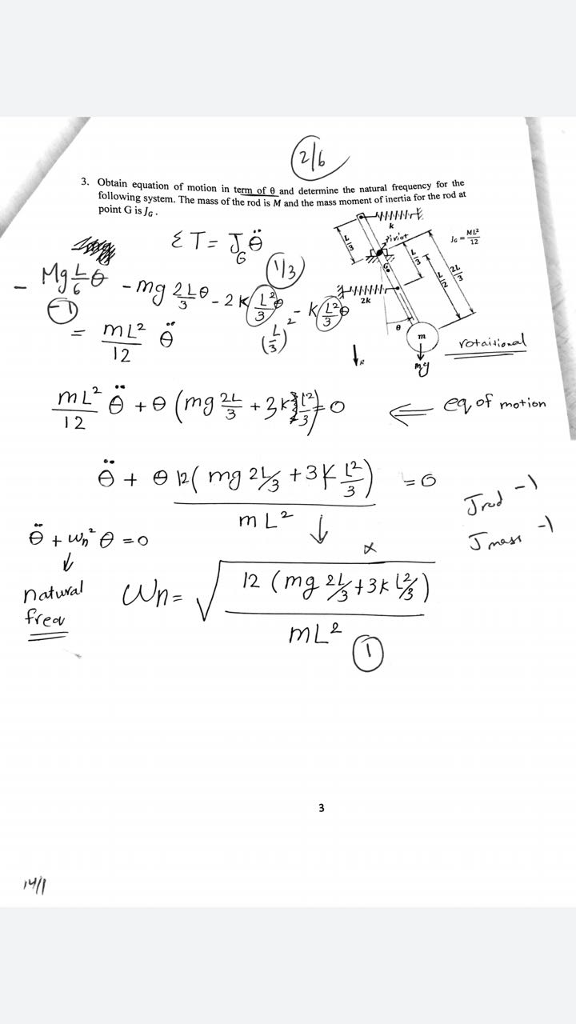 2/6
3. Obtain equation of motion in term of θ and determine the natural frequency for the
following system. The mass of the rod is M and the mass moment of inertia for the rod at
point G is J_G.
k
pivot
J_G = ML²/12
L/3
G
L/3
L/2
2L/3
2k
θ
m
mg
rotaitional
ΣT = J_G θ̈
(1/3)
- Mg L/6 θ - mg 2L/3 θ - 2k L²/3 θ - k L²/3 θ
(-1)
(L/3)²
= mL²/12 θ̈
mL²/12 θ̈ + θ (mg 2L/3 + 3k L²/3) = 0 ⇐ eq of motion
θ̈ + θ 12(mg 2L/3 + 3k L²/3) / mL² = 0
J rod -1
J mass -1
θ̈ + ωn² θ = 0
natural
freq
ωn = √(12 (mg 2L/3 + 3k L²/3) / mL²)
(1)
3
14/1